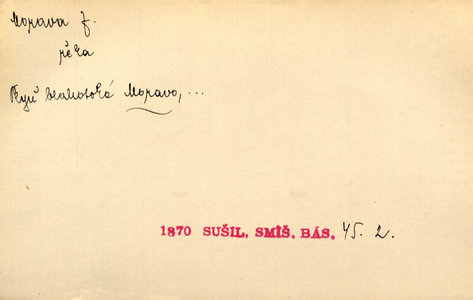 Morava f.
řeka
Kyň blahotoká Moravo, ...
1870 SUŠIL, SMÍŠ. BÁS. 45. 2.